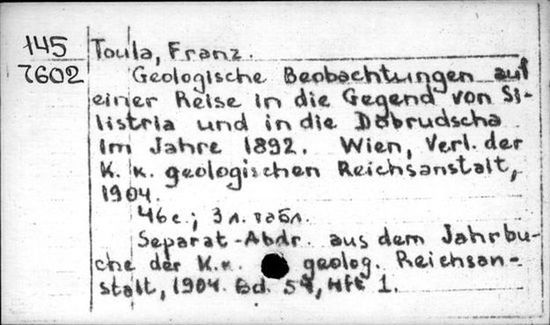 145
7602
Toula, Franz.
Geologische Beobachtungen auf
einer Reise in die Gegend von Si-
listria und in die Dobrudscha
im Jahre 1892. Wien, Verl. der
K. K. geologischen Reichsanstalt,
1904.
46 с.; 3 л. табл.
Separat-Abdr. aus dem Jahrbu-
che der K.K. geolog. Reichsan-
stalt, 1904. Bd. 54, Hft 1.